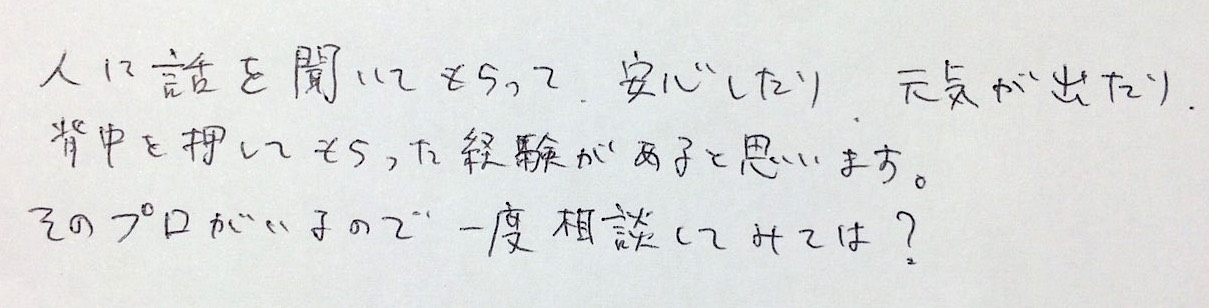 人に話を聞いてもらって、安心したり 元気が出たり、
背中を押してもらった経験があると思います。
そのプロがいるので一度相談してみては？